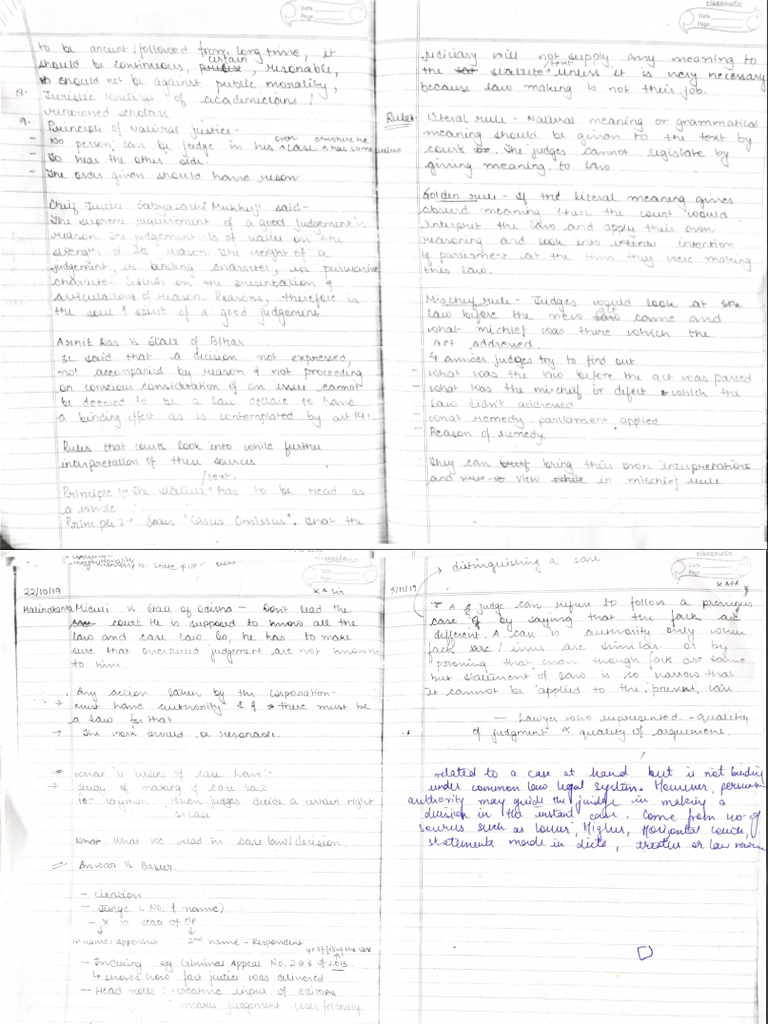 classmate
Date
Page
to be ancient/followed from long time, it
should be continuous, certain, resonable,
should not be against public morality,
8. Juristic writings of academicians/
renowned scholars
9. Principle of Natural justice -
- No person can be judge in his own case
- To hear the other side
- The order given should have reson
Chief Justice Sabyasachi Mukherji said -
The supreme requirement of a good judgement is
reason. The judgement is of value on the
strength of its reason. The weight of a
judgement, its binding character, or persuasive
character depends on the presentation &
articulation of reason. Reasons, therefore is
the soul & spirit of a good judgement
Vs State of Bihar
SC said that a decision not expressed,
not accompanied by reason & not proceeding
on conscious consideration of an issue cannot
be deemed to be a law declare to have
a binding effect as is contemplated by art 141.
Rules that courts look into while further
interpretation of these sources
Principle 1- The statute/text has to be read as
a whole
Principle 2- "Casus Omissus". That the
classmate
Date
Page
judiciary will not supply any meaning to
the statute/text unless it is very necessary
because law making is not their job.
Rules - Literal rule - Natural meaning or grammatical
meaning should be given to the text by
courts. The judges cannot legislate by
giving meaning to law
Golden rule - If the literal meaning gives
absurd meaning then the court would
interpret the law and apply their own
reasoning and look into intention
of parliament at the time they were making
this law.
Mischief rule - Judges would look at
law before the new act came and
what mischief was there which the
act addressed.
4 answers judges try to find out
- what was the law before the act was passed
- what was the mischief or defect which the
law didn't addressed
- what remedy parliament applied
- Reason of remedy.
They can bring their own interpretations
and view in mischief rule
classmate
Date
Page
22/10/19
Vs State of Odisha - Don't lead the
court. He is supposed to know all the
law and case law. So, he has to make
sure that overruled judgement are not
to him.
. Any action taken by the corporation -
→ must have authority & there must be
a law for that
→ The work should be resonable.
→ What is basics of case laws:-
→ study of making of case law
when judges decide a certain right
or case
What we read in case law/decision.
- citation
- Judge (No. & name)
- X vs State of UP
1st name: Appellant 2nd name - Respondent
yr of filing the case
- eg Criminal Appeal No. 283 of 2013.
↳ shows how fast justice was delivered
- Head notes :- of editors
makes judgement user friendly.
→ distinguishing a case
classmate
Date
Page
5/11/19
A judge can refuse to follow a previous
case by saying that the fact are
different. A case is authority only when
fact are/issues are similar or by
proving that even though fact are same
but statement of law is so narrow that
it cannot be applied to the present case.
- Lawyer who represented - quality
of judgment ∝ quality of argument.
related to a case at hand but is not binding
under common law legal system. However, persuasive
authority may guide the judge in making a
decision in the instant case. Come from no. of
sources such as lower, Higher, Horizontal courts,
statements made in dicta, treatise or law review